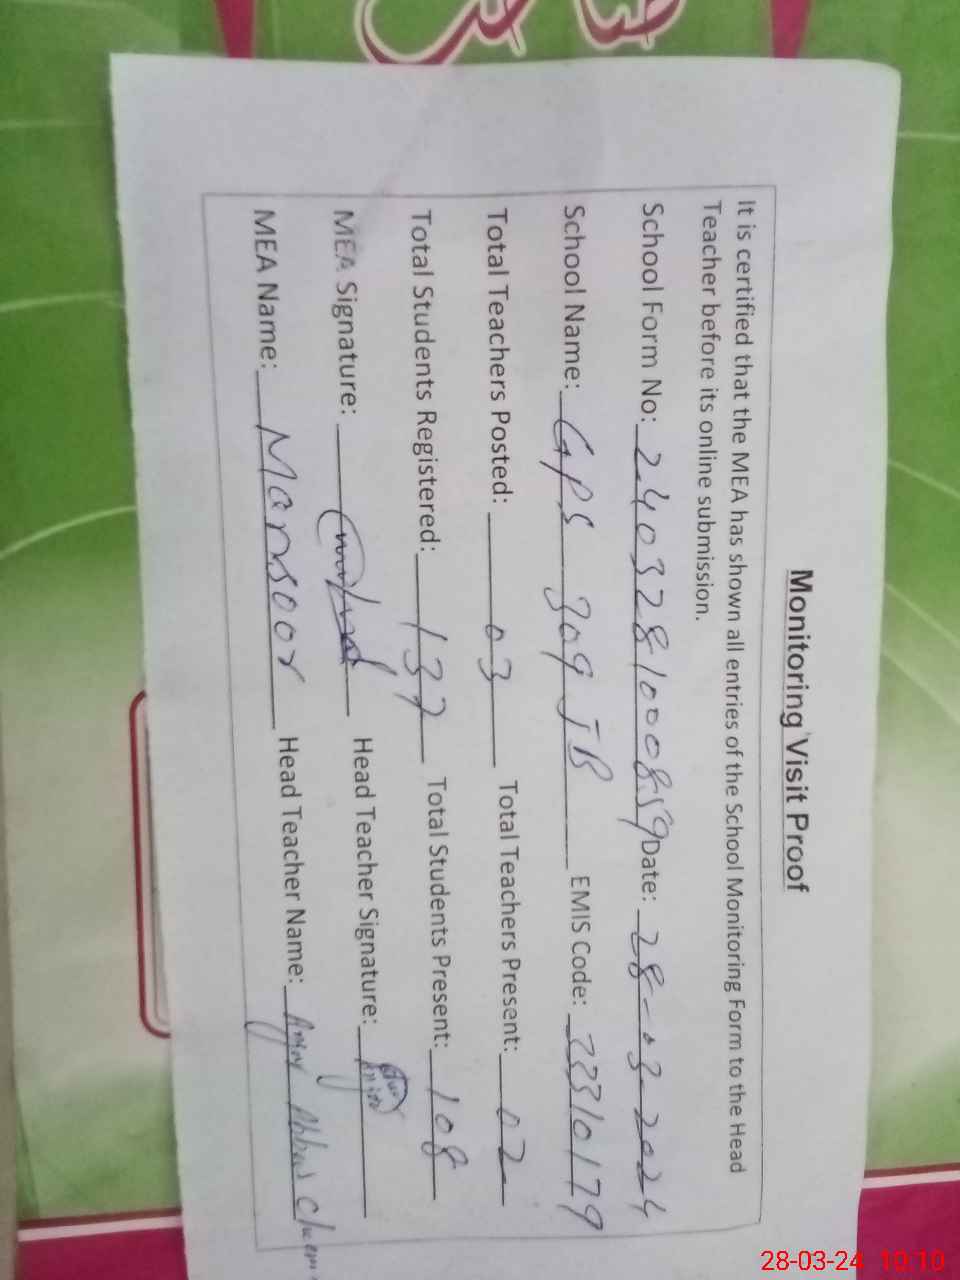 Monitoring Visit Proof
It is certified that the MEA has shown all entries of the School Monitoring Form to the Head
Teacher before its online submission.
School Form No: 2403281000859 Date: 28-03-2024
School Name: GPS 309 JB EMIS Code: 33310179
Total Teachers Posted: 03 Total Teachers Present: 02
Total Students Registered: 137 Total Students Present: 108
MEA Signature: Head Teacher Signature:
MEA Name: Mansoor Head Teacher Name: Abbas
28-03-24 10:10